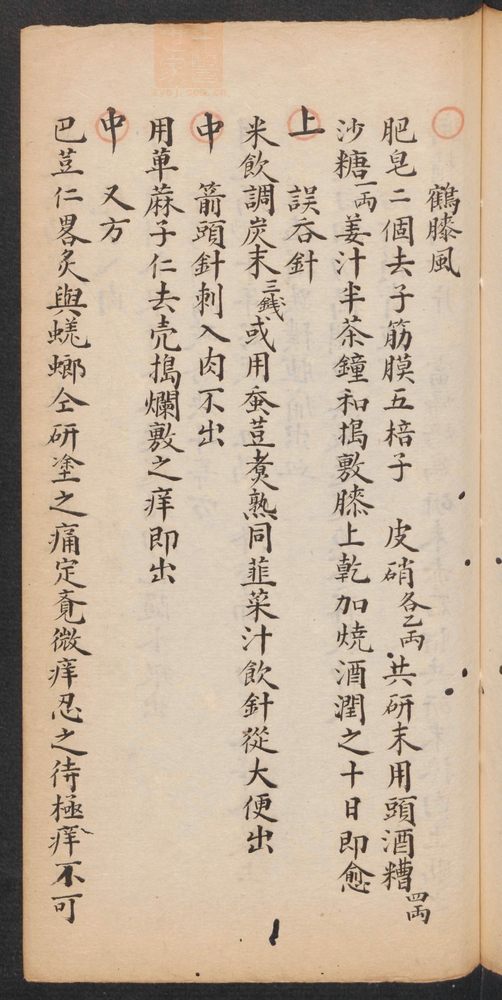 鶴膝風
肥皂二個去子筋膜五棓子 皮硝各乙兩共研末用頭酒糟四兩
沙糖一兩姜汁半茶鐘和搗敷膝上乾加燒酒潤之十日即愈
上 誤吞針
米飲調炭末三錢或用蚕荳煮熟同韮菜汁飲針從大便出
中 箭頭針刺入肉不出
用萆蔴子仁去壳搗爛敷之痒即出
中 又方
巴荳仁畧炙與蜣螂仝研塗之痛定覔微痒忍之待極痒不可